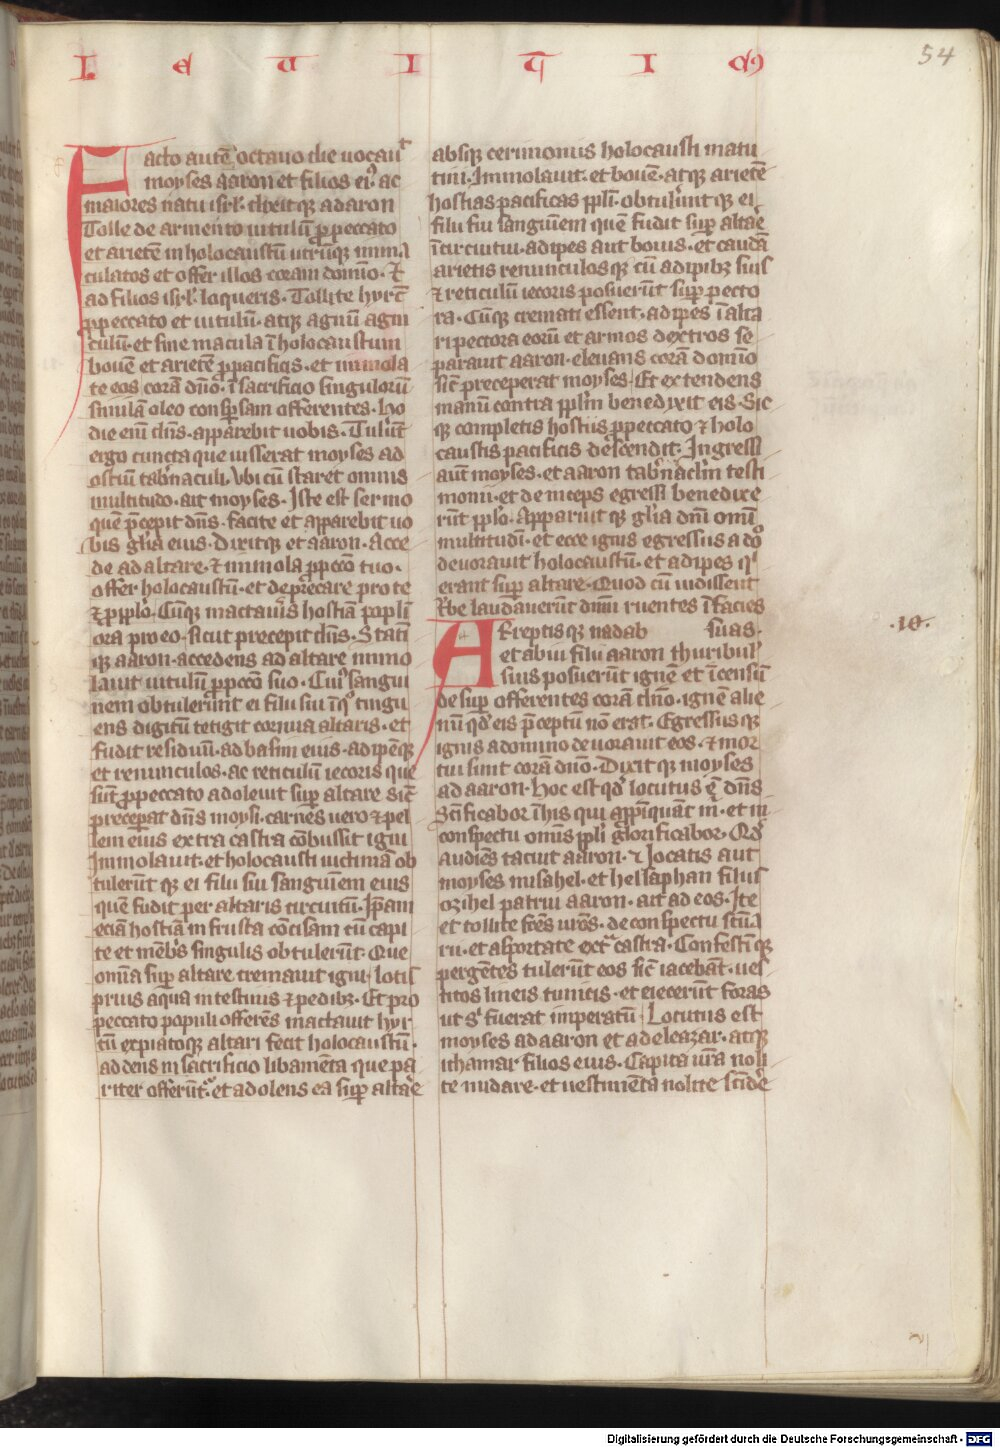 L e u i t i cꝰ
54
Facto autē octauo die uocauᵗ
moyses aaron et filios eiꝰ ac
maiores natu isrl̓. dixitqꝫ ad aron
Tolle de armento uitulū ꝓ peccato
et arietē in holocaustū utrūqꝫ imma
culatos et offer illos coram domīo. Et
ad filios isrl̓ loqueris. Tollite hyrcū
ꝓ peccato et uitulū. atqꝫ agnū agni
culū. et sine macula ī holocaustum
bouē et arietē ꝓ pacificis. et immola
te eos corā dn̄o. ī sacrificio singulorū
similā oleo conspersam offerentes. Ho
die enī dn̄s. apparebit uobis. Tulēr̄t
ergo cuncta que iusserat moyses ad
ostiū tabn̄aculi. Vbi cū staret omnis
multitudo. ait moyses. Iste est sermo
quē p̄cepit dn̄s. facite et apparebit uo
bis gl̓ia eius. Dixitqꝫ et aaron. Acce
de ad altare. et immola ꝓ pccō tuo.
offer holocaustū. et deprecare pro te
et ꝓ pplo. Cūqꝫ mactaueris hostiā popl̓i
ora pro eo. sicut precepit dn̄s. Stati
qꝫ aaron. accedens ad altare immo
lauit uitulū ꝓ pccō suo. Cuiꝰ sangui
nem obtulerūt ei filii sui ī qᵒ tingu
ens digitū tetigit cornua altaris. et
fudit residuū. ad basim eius. adipēqꝫ
et renunculos. ac reticulū iecoris que
sūt ꝓ peccato adoleuit suꝑ altare sic̄
preceꝑat dn̄s moysi. carnes uero et pel
lem eius extra castra cōbussit igni
Immolauit. et holocausti uictimā ob
tulerūt qꝫ ei filii sui sanguinem eius
quē fudit per altaris circuitū. Ip̄am
etiā hostiā in frusta cōcisam cū capi
te et mēbris singulis obtulerūt. Que
omīa suꝑ altare cremauit igni. lotis
prius aqua intestinis et pedibꝫ. Et pro
peccato populi offerēs mactauit hyr
cū expiatoqꝫ altari fecit holocaustū.
addens in sacrificio libamēta que pa
riter offerūt. et adolens ea suꝑ altare
absqꝫ cerimoniis holocausti matu
tini. Immolauit. et bouē. atqꝫ arietē
hostias pacificas ppl̓i. obtulerūt qꝫ ei
filii sui sanguinem quē fudit suꝑ altare
ī circuitu. adipes aut bouis. et caudā
arietis renunculosqꝫ cū adipibꝫ suis
et reticulū iecoris posuerūt suꝑ pecto
ra. Cūqꝫ cremati essent. adipes ī alta
ri pectora eorū et armos dextros se
parauit aaron. eleuans corā domīo
sic̄ preceperat moyses. Et extendens
manū contra ppl̓m benedixit eis. Sic
qꝫ completis hostiis ꝓ peccato et holo
caustis pacificis descendit. Ingressi
aut̄ moyses. et aaron tabn̄aclm̄ testi
monii. et deinceps egressi benedixe
rūt pplo. Apparuit qꝫ gl̓ia dn̄i omī
multitudī. et ecce ignis egressus a dō
deuorauit holocaustū. et adipes qⁱ
erant suꝑ altare. Quod cū uidissent
t̓be laudauerūt dnm̄ ruentes ī facies
Arreptisqꝫ nadab suas.
et abiu filii aaron thuribul̓
suis posuerūt ignē et īcensū
desuꝑ offerentes corā dn̄o. ignē alie
nū qd̓ eis p̄ceptū nō erat. Egressusqꝫ
ignis a domino deuorauit eos. et mor
tui sunt corā dn̄o. Dixit qꝫ moyses
ad aaron. Hoc est qd̓ locutus ē dn̄s
Sc̄ificabor ī his qui apꝓīquāt m̄. et in
conspectu omīs ppl̓i glorificabor. Qd̓
audiēs tacuit aaron. et Vocatis aut
moyses misahel. et helsaphan filiis
ozihel patrui aaron. ait ad eos. Ite
et tollite fr̄es ur̄os. de conspectu sc̄ua
rii. et asportate exᵗ castra. Confestīqꝫ
pergētes tulerūt eos sic̄ iacebāt. ues
titos lineis tunicis. et eiecerūt foras
ut sᵇ fuerat imperatū. Locutus est
moyses ad aaron et ad eleazar. atqꝫ
ithamar filios eius. Capita ur̄a noli
te nudare. et uestimēta nolite scīdere
.10.
Digitalisierung gefördert durch die Deutsche Forschungsgemeinschaft - DFG